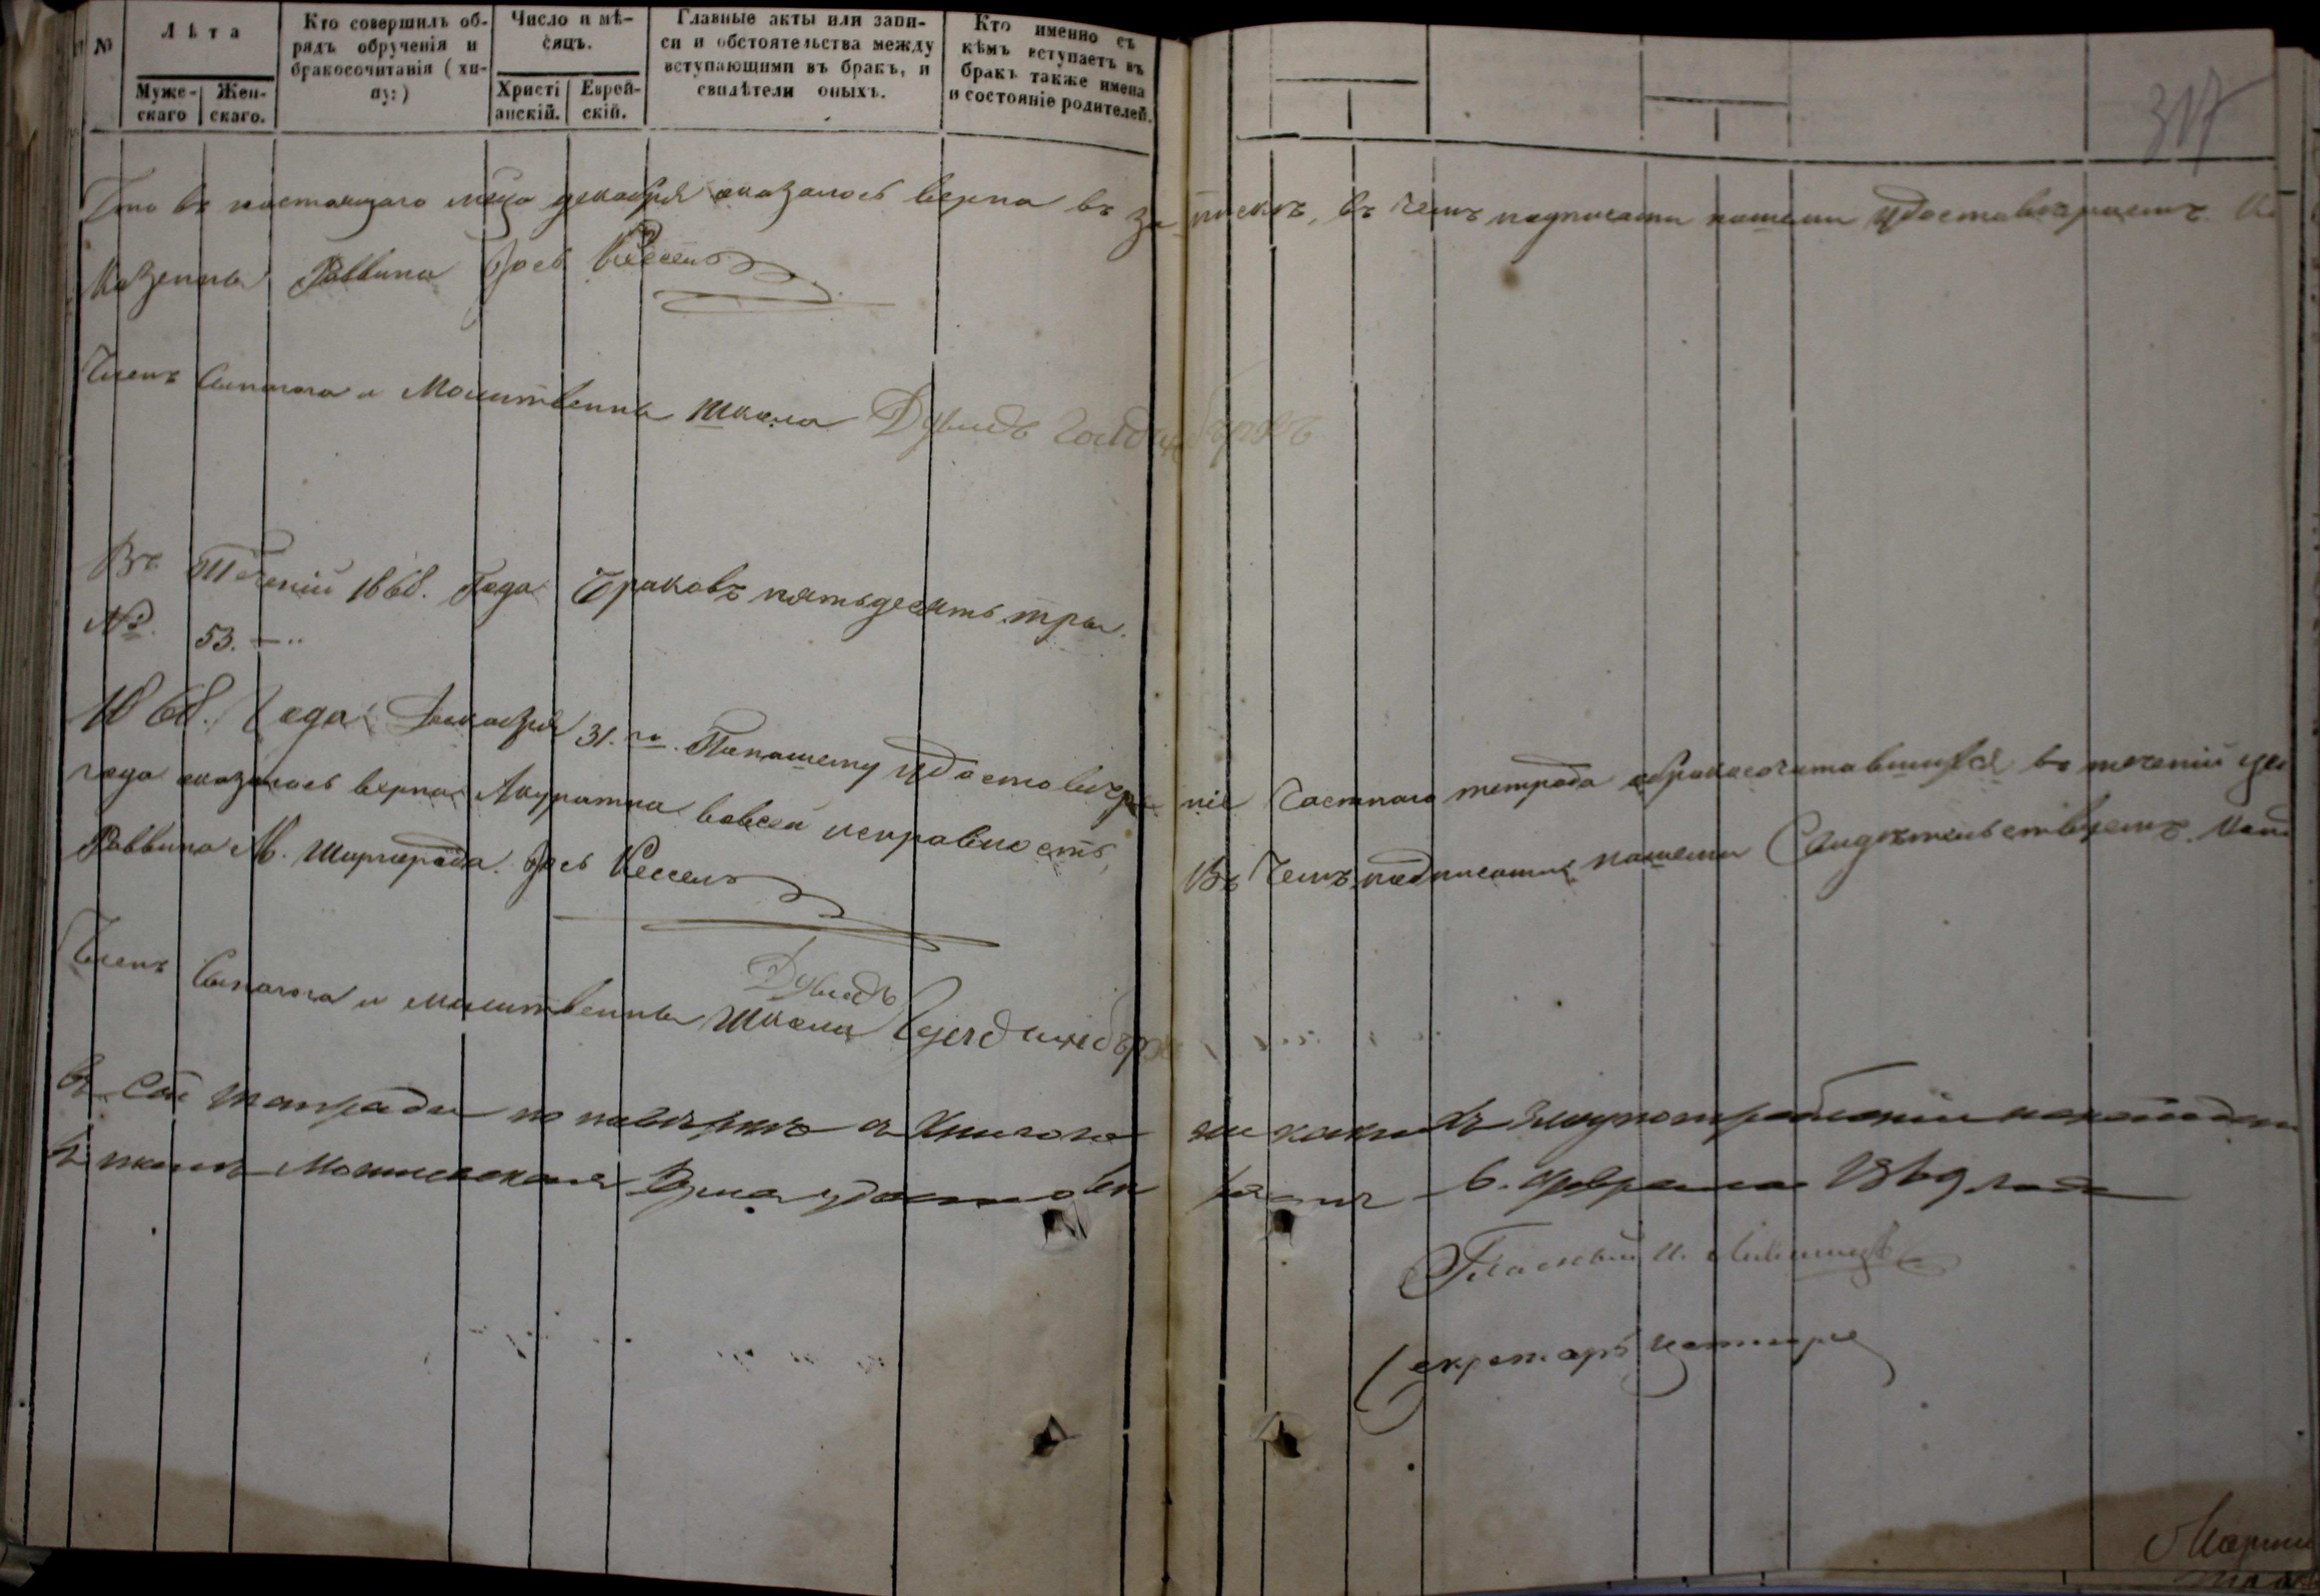 №
Лѣта
Муже-
скаго
Жен-
скаго.
Кто совершилъ об-
рядъ обрученія и
бракосочитанія (хи-
пу:)
Число и мѣ-
сяцъ.
Христі
анскій.
Еврей-
скій.
Главные акты или запи-
си и обстоятельства между
вступающими въ бракъ, и
свидѣтели оныхъ.
Кто именно съ
кѣмъ вступаетъ въ
бракъ также имена
и состояніе родителей.
317
Что въ настоящаго мца декабря оказалось верна въ запискъ, въ чемъ подписами нашеми удостовѣраемъ.
Казенны Раввина Іось Кессель
Членъ Синагога и Молитвенны школа Дувидъ
Въ теченіи 1868. Года Браковъ пятьдесять тры.
№ 53.
1868. Года Декабря 31. го. Понашему удостовѣреніе Частнаго тетрада обракосочитавшихся въ теченіи
года оказалось верна Акуратна вовсей исправность, Въ Чемъ подписами нашеми Свидѣтельствуемъ.
Раввина М. Шаргорода. Іось Кессель
Членъ Синагога и молитвенны школы Дувидъ
въ сей тетради по повѣркѣ никакихъ злоупотребленіи
удостовѣряетъ 6. февраля 1869 года
Гласный И.
Секретарь